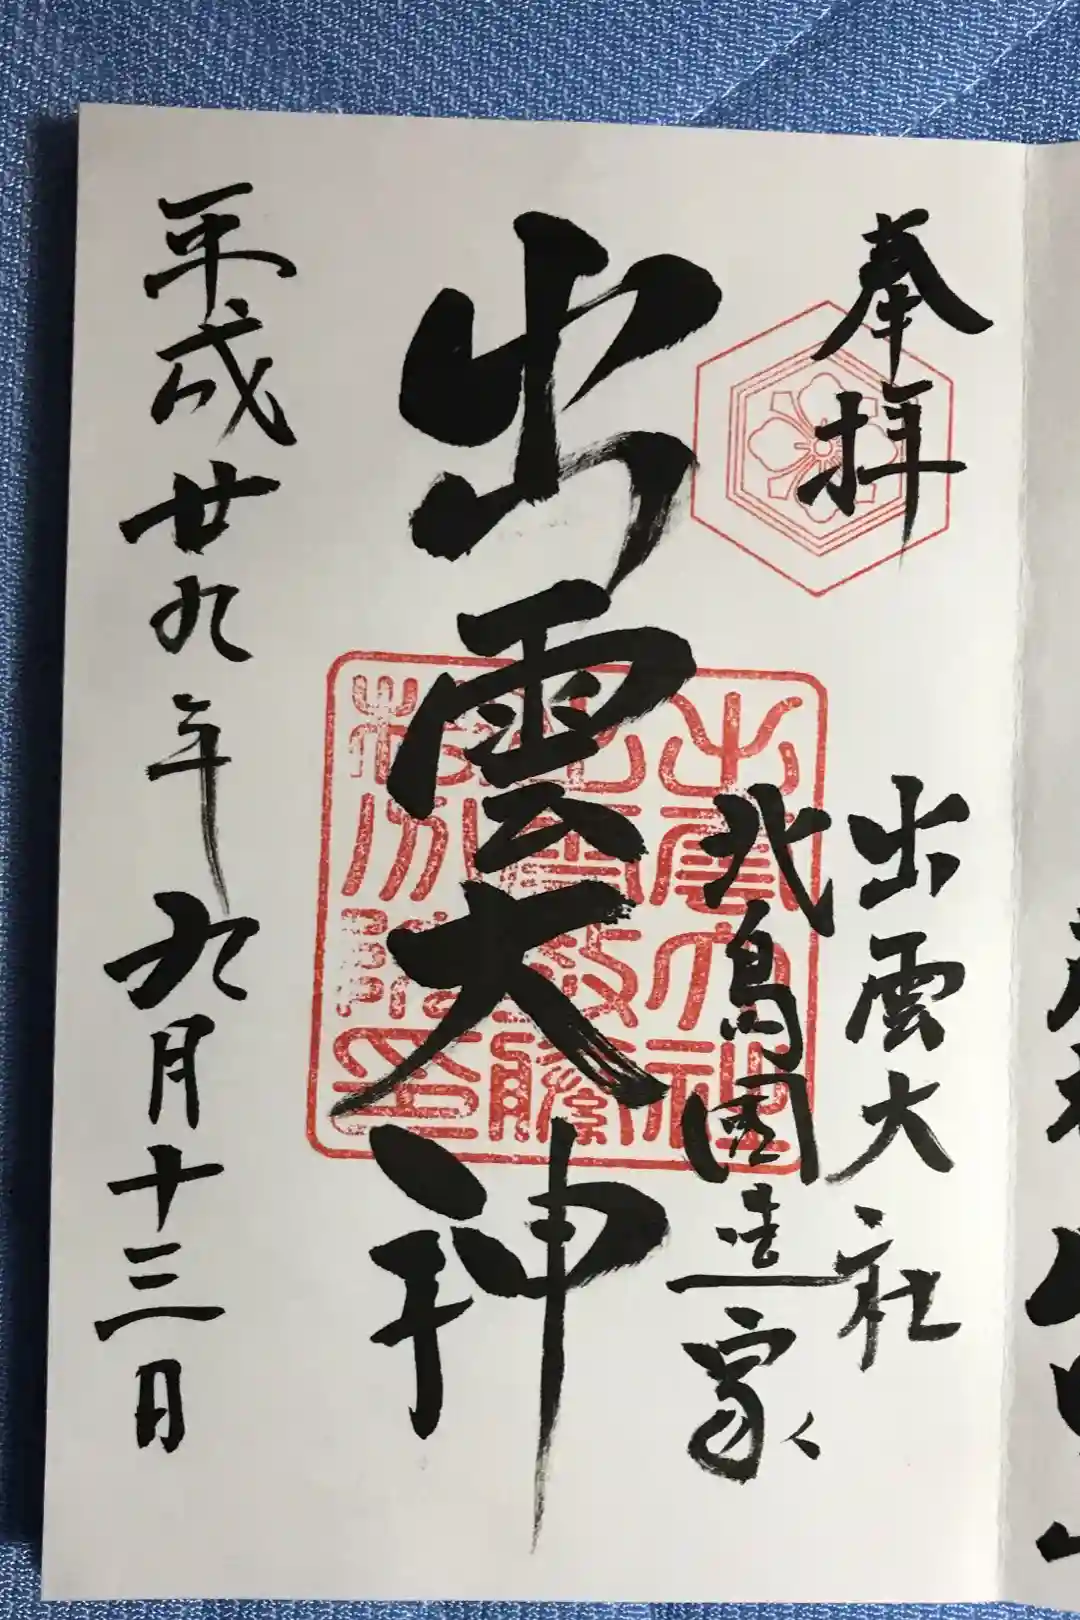 奉拝
出雲大社
北島國造家
出雲大神
平成廿九年九月十三日
出雲大社